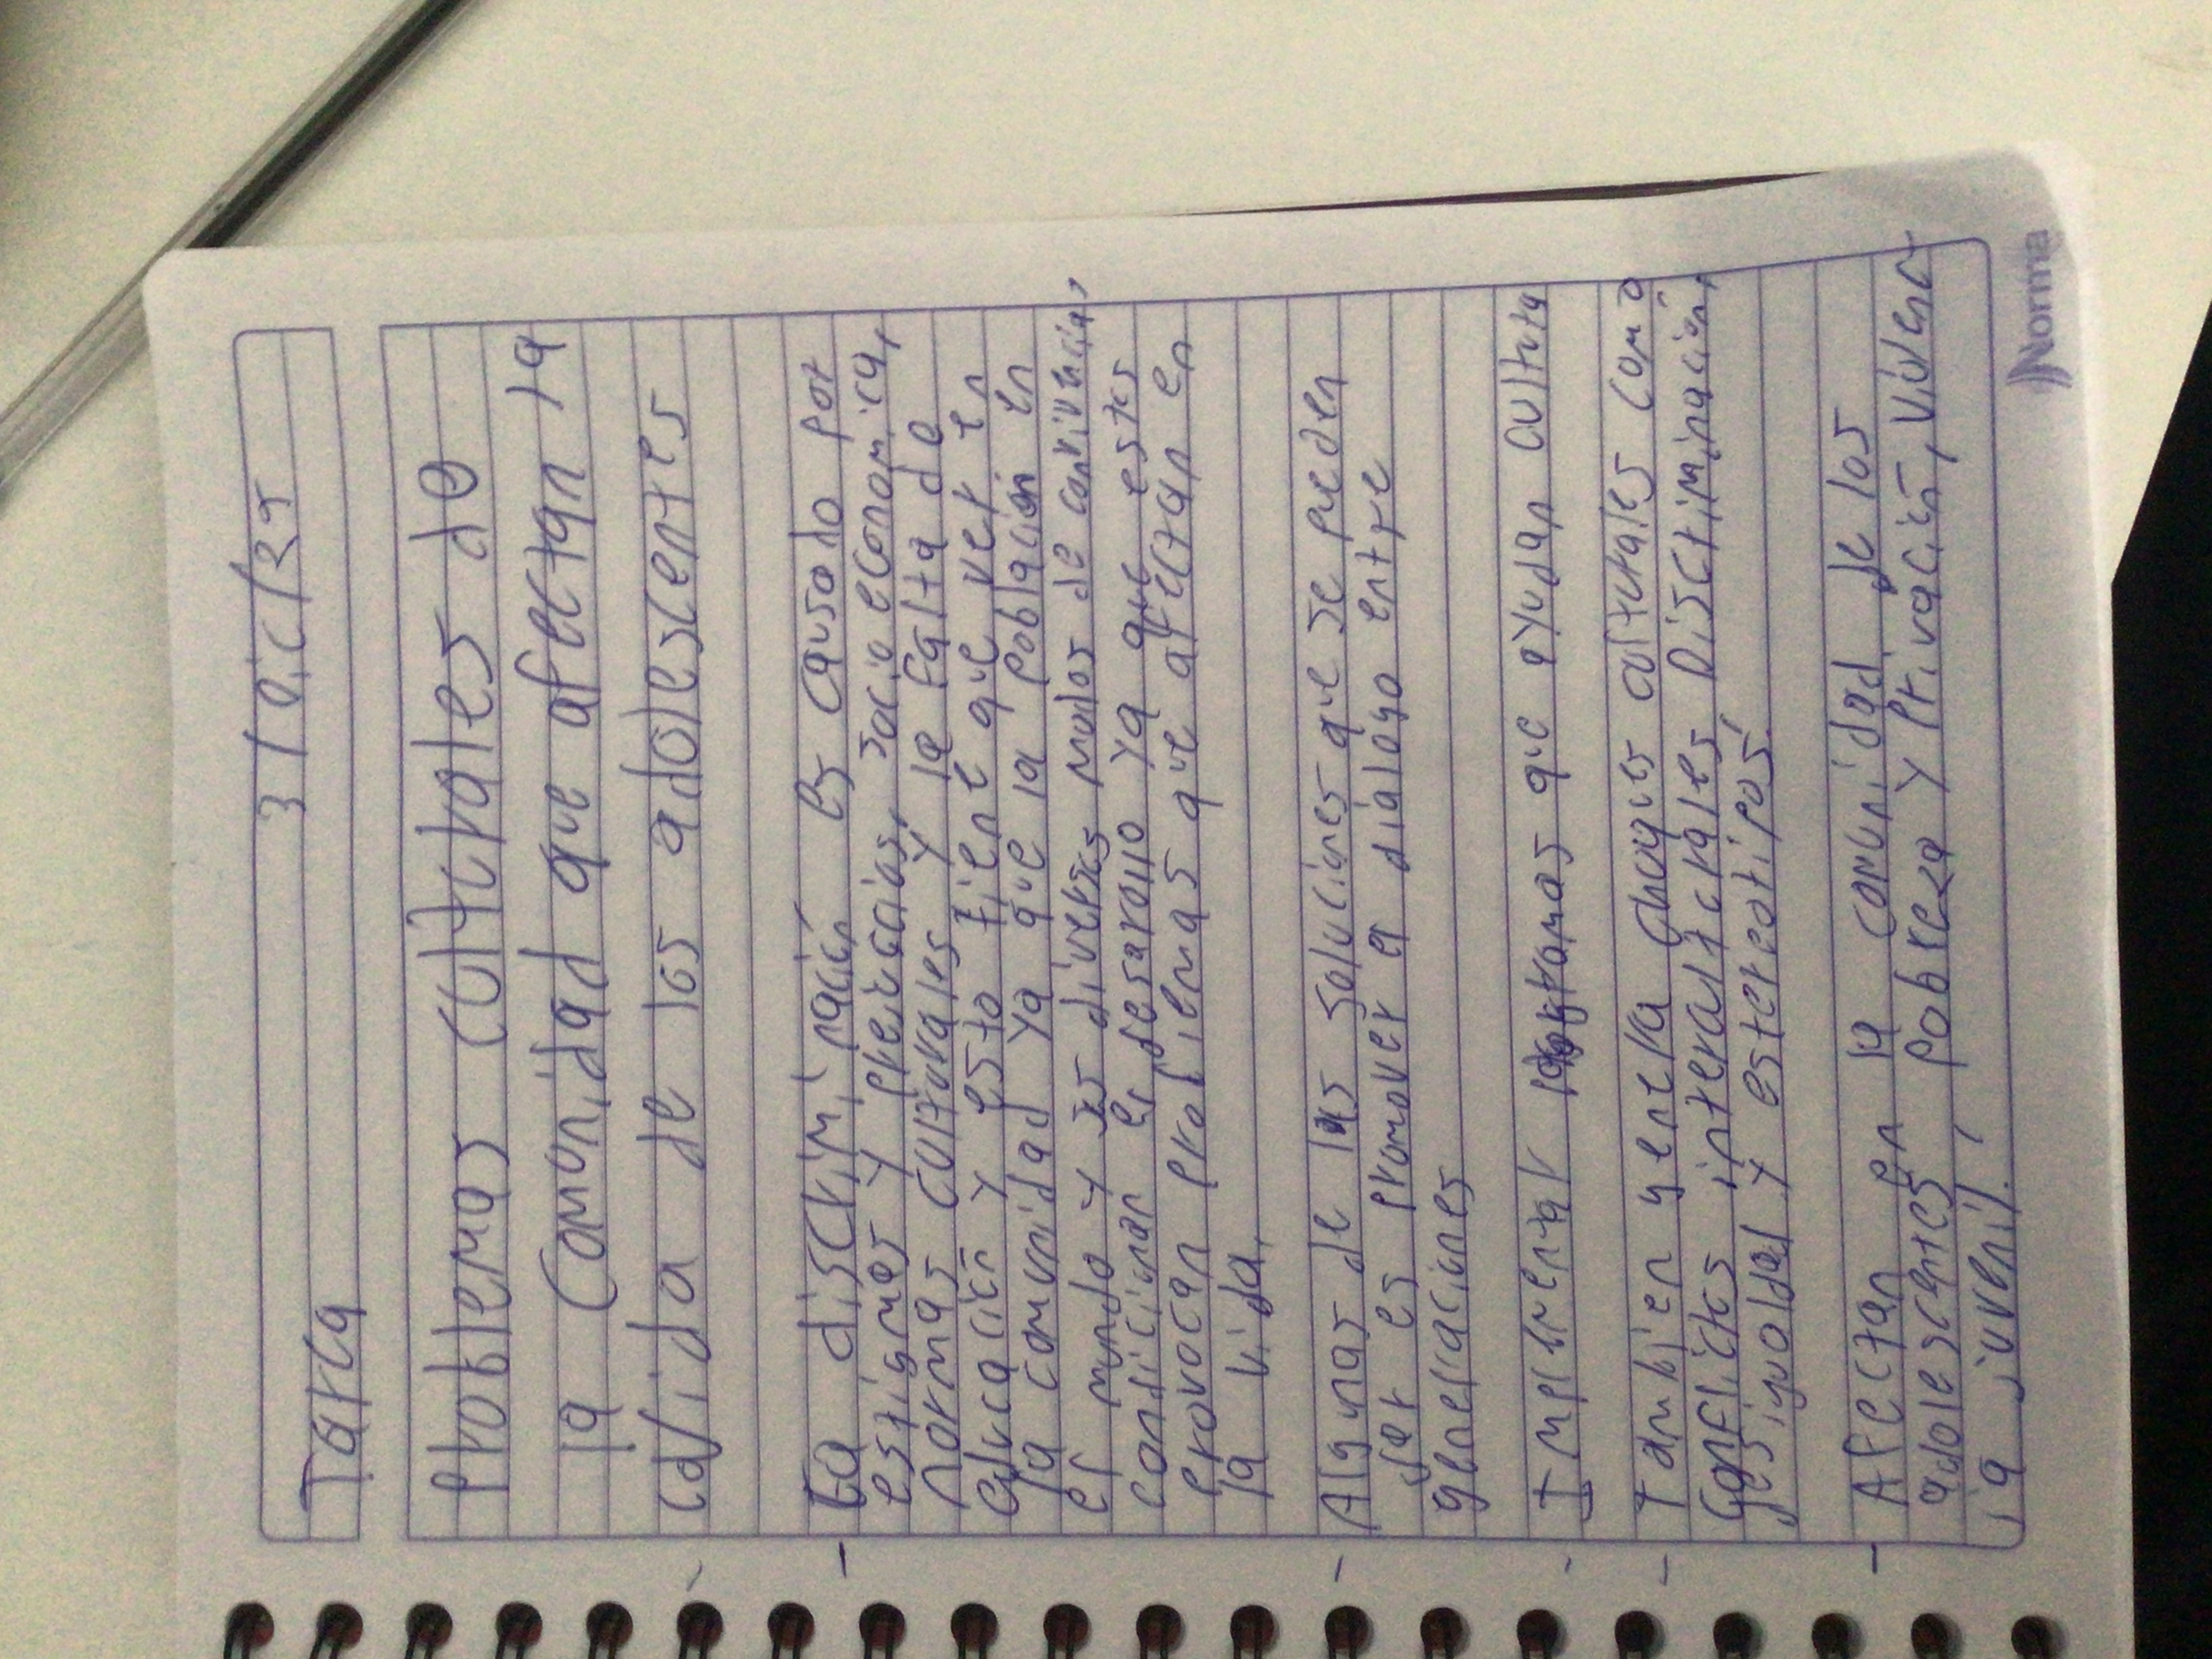 Tarea
3/Dic/25
Problemas culturales de
la Comunidad que afectan la
calida de los adolescentes
- La discrimi nación es causado por
estigmas y preincias, socio economica,
normas culturales y la Falta de
educación y esto tiene que ver en
la comunidad ya que la población en
el mundo y sus diversos modos de convivencias
condicionan el desarollo ya que estos
provocan problemas que afectan en
la vida.
- Algunas de las soluciones que se pueden
dar es promover el dialogo entre
generaciones
- Implementar que ayudan cultura
- Tambien genera choques culturales como
Conflictos interculturales, Discriminación,
desigualdad y estereotipos.
- Afectan en la comunidad de los
adolescentes, Pobreza y Privación, Vivenc
ia juvenil.
Norma